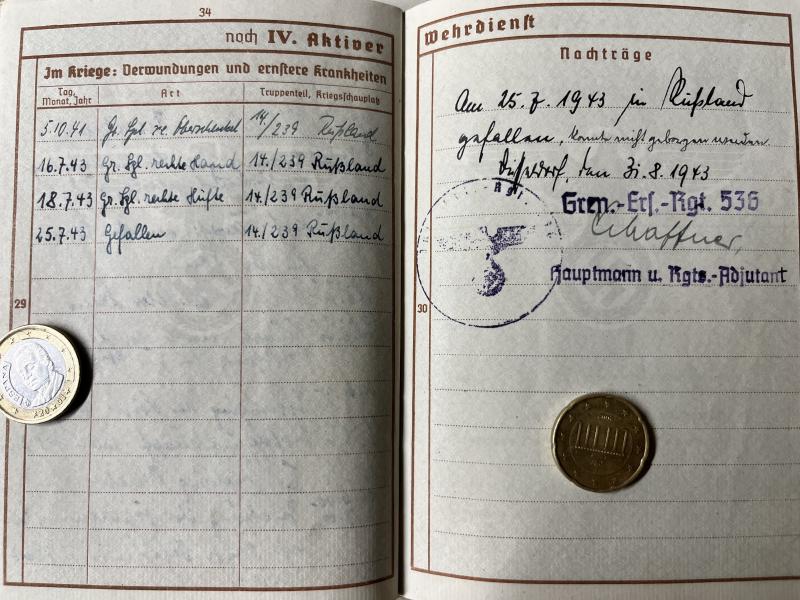 34
noch IV. Aktiver
Im Kriege: Verwundungen und ernstere Krankheiten
Tag, Monat, Jahr
Art
Truppenteil, Kriegsschauplatz
5.10.41 Gr. Spl. re. Oberschenkel 14./239 Rußland
16.7.43 Gr. Spl. rechte Hand 14./239 Rußland
18.7.43 Gr. Spl. rechte Hüfte 14./239 Rußland
25.7.43 Gefallen 14./239 Rußland
29
Wehrdienst
Nachträge
Am 25.7.1943 in Rußland
gefallen, konnte nicht geborgen werden.
Düsseldorf, den 31.8.1943
Gren.-Ers.-Rgt. 536
Hauptmann u. Rgts.-Adjutant
30